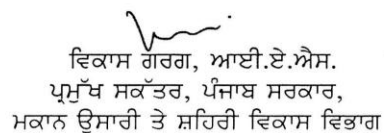 ਵਿਕਾਸ ਗਰਗ, ਆਈ.ਏ.ਐਸ.
ਪ੍ਰਮੁੱਖ ਸਕੱਤਰ, ਪੰਜਾਬ ਸਰਕਾਰ,
ਮਕਾਨ ਉਸਾਰੀ ਤੇ ਸ਼ਹਿਰੀ ਵਿਕਾਸ ਵਿਭਾਗ